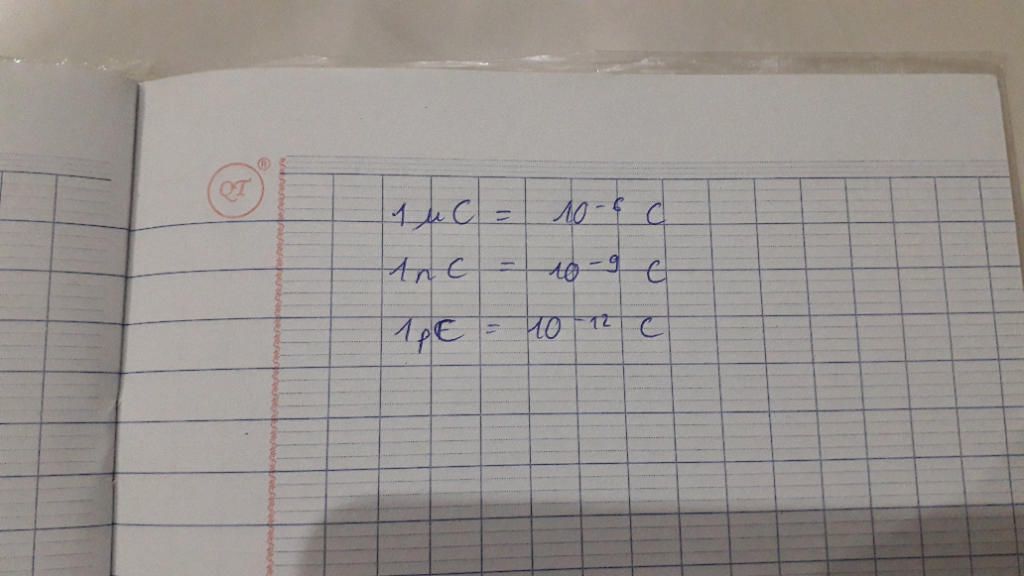 QT ®
1 μC = 10⁻⁶ C
1 nC = 10⁻⁹ C
1 pC = 10⁻¹² C